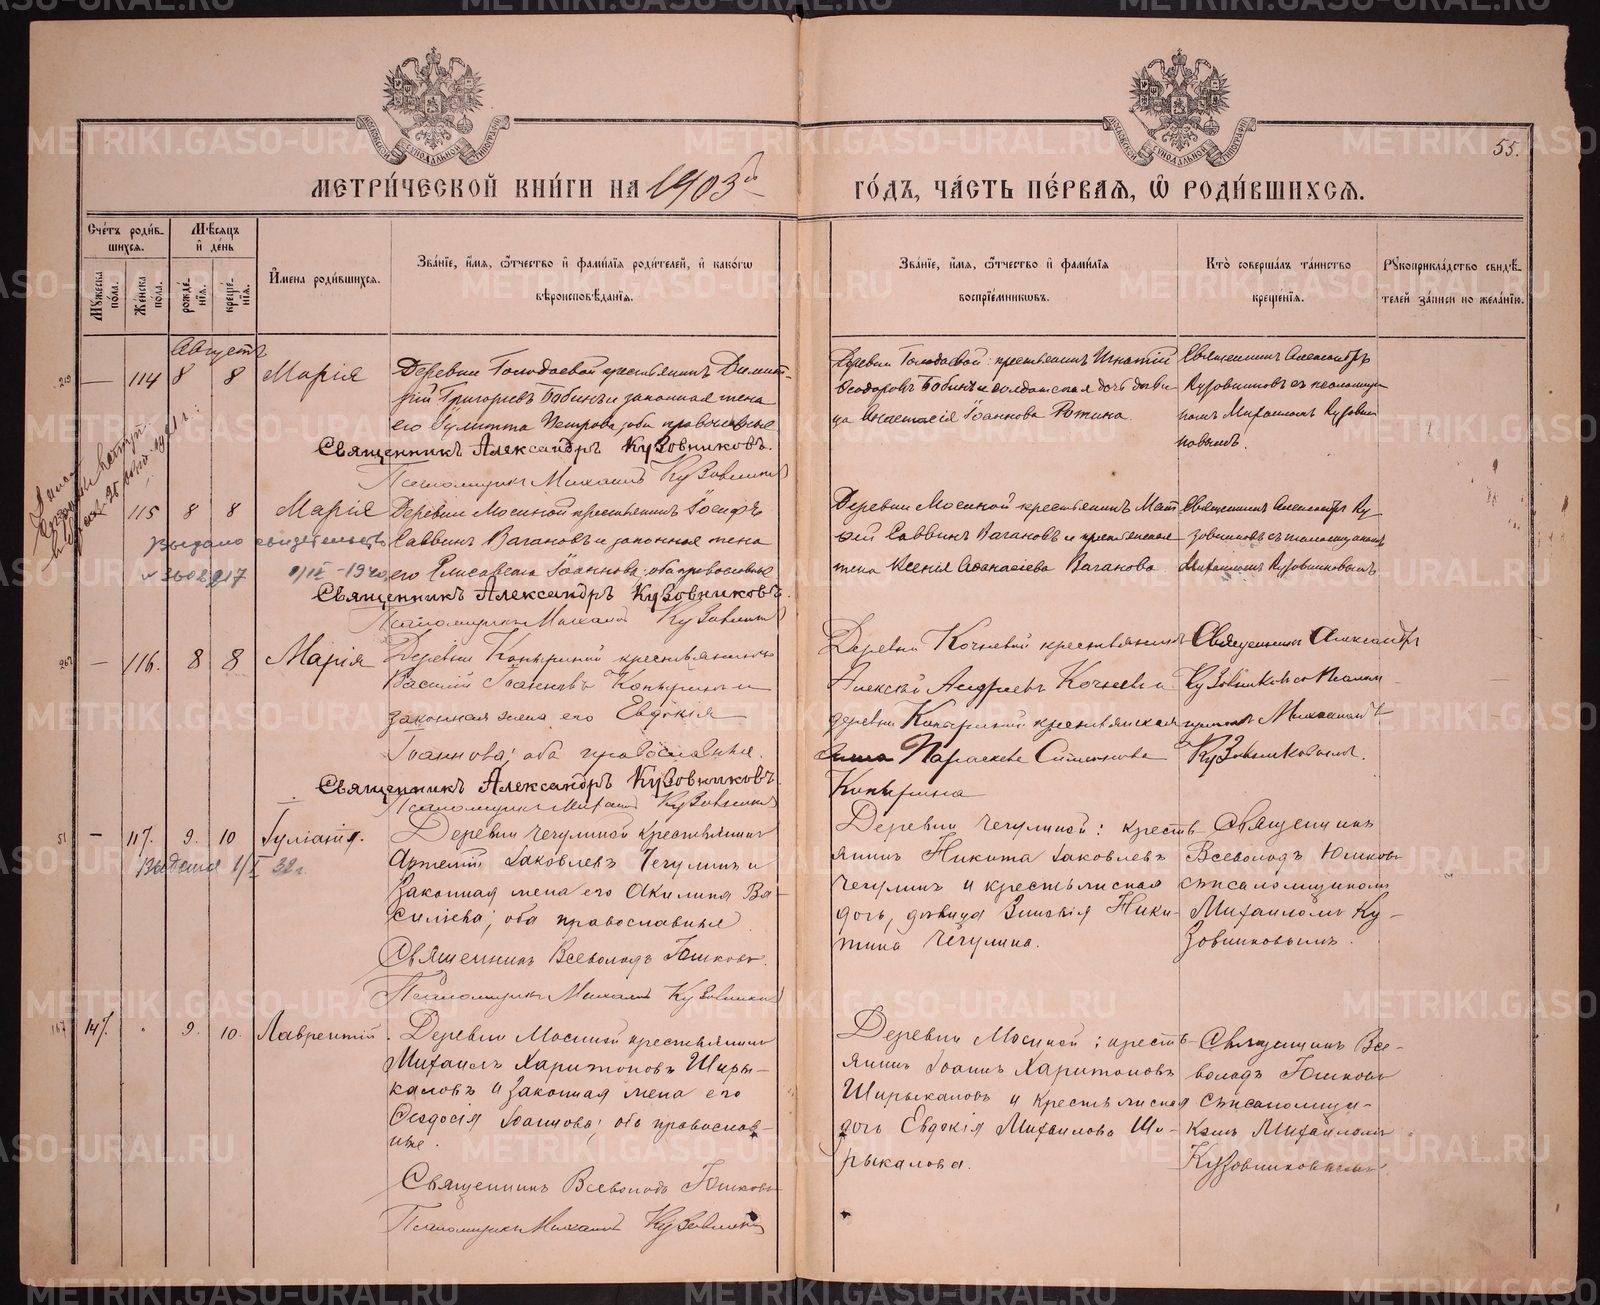 МОСКОВСКОЙ СѴНОДАЛЬНОЙ ТИПОГРАФІИ
МОСКОВСКОЙ СѴНОДАЛЬНОЙ ТИПОГРАФІИ
55.
МЕТРИ́ЧЕСКОЙ КНИ́ГИ НА 1903й
ГО́ДЪ, ЧА́СТЬ ПЕ́РВАЯ, Ѡ РОДИ́ВШИХСЯ.
Сче́тъ роди́в-
шихся.
Мѣсяцъ
и де́нь
Мꙋ́жеска
по́ла.
Же́нска
по́ла.
рожде́-
нія.
креще́-
нія.
Имена роди́вшихся.
Зва́ніе, и́мя, ѻ́тчество и фами́лія роди́телей, и како́гѡ
вѣроисповѣ́данія.
Зва́ніе, и́мя, ѻ́тчество и фами́лія
воспріе́мникѡвъ.
Кто̀ соверша́лъ та́инство
креще́нія.
Рꙋкоприкла́дство свидѣ́-
телей за́писи по жела́нію.
Августъ
219
— 114 8 8 Марія
Деревни Голодаевой крестьянинъ Димит-
рій Григорьевъ Бабинъ и законная жена
его Іулитта Петрова, оба православные
Священникъ Александръ Кузовниковъ.
Псаломщикъ Михаилъ Кузовников
Деревни Голодаевой: крестьянинъ Игнатій
Ѳеодоровъ Бабинъ и солдатская дочь дѣви-
ца Анастасія Іоаннова
Священникъ Александръ
Кузовниковъ съ псаломщи-
комъ Михаиломъ Кузовни-
ковымъ.
115 8 8 Марія
Деревни Мосиной крестьянинъ Іосифъ
Саввинъ Вагановъ и законная жена
его Елисавета Іоаннова, оба православные
Священникъ Александръ Кузовниковъ.
Псаломщикъ Михаил Кузовников
Выдано свидетельство
№ 3602917
1940
Деревни Мосиной крестьянинъ Мат-
ѳей Саввинъ Вагановъ и крестьянская
жена Ксенія Аѳанасіева Ваганова
Священникъ Александръ Ку-
зовниковъ съ псаломщикомъ
Михаиломъ Кузовниковымъ
267
— 116. 8 8 Марія
Деревни Копыриной крестьянинъ
Василій Іоанновъ Копыринъ и
законная жена его Евдокія
Іоаннова; оба православные.
Священникъ Александръ Кузовниковъ.
Псаломщикъ Михаил Кузовников
Деревни Кочневой крестьянинъ
Алексѣй Андреевъ Кочневъ и
деревни Копыриной крестьянская
жена Параскева Симеонова
Копырина
Священникъ Александръ
Кузовниковъ со псалом-
щикомъ Михаиломъ
Кузовниковымъ.
51
— 117. 9. 10 Іуліанія.
Выдана 1/I 32г.
Деревни Чечулиной крестьянинъ
Артемій Іаковлевъ Чечулинъ и
законная жена его Акилина Ва-
силіева; оба православные
Священникъ Всеволодъ Юшковъ.
Псаломщикъ Михаил Кузовников
Деревни Чечулиной: кресть-
янинъ Никита Іаковлевъ
Чечулинъ и крестьянская
дочь, дѣвица Зиновія Ники-
тина Чечулина.
Священникъ
Всеволодъ Юшковъ
съ псаломщикомъ
Михаиломъ Ку-
зовниковымъ.
167
147. 9. 10. Лаврентій.
Деревни Мосиной крестьянинъ
Михаилъ Харитоновъ Ширы-
каловъ и законная жена его
Ѳеодосія Іоаннова; оба православ-
ные.
Священникъ Всеволодъ Юшковъ
Псаломщикъ Михаил Кузовников
Деревни Мосиной: кресть-
янинъ Іоаннъ Харитоновъ
Ширыкаловъ и крестьянская
дочь Евдокія Михаилова Ши-
рыкалова.
Священникъ Все-
володъ Юшковъ
съ псаломщи-
комъ Михаиломъ
Кузовниковымъ.
METRIKI.GASO-URAL.RU